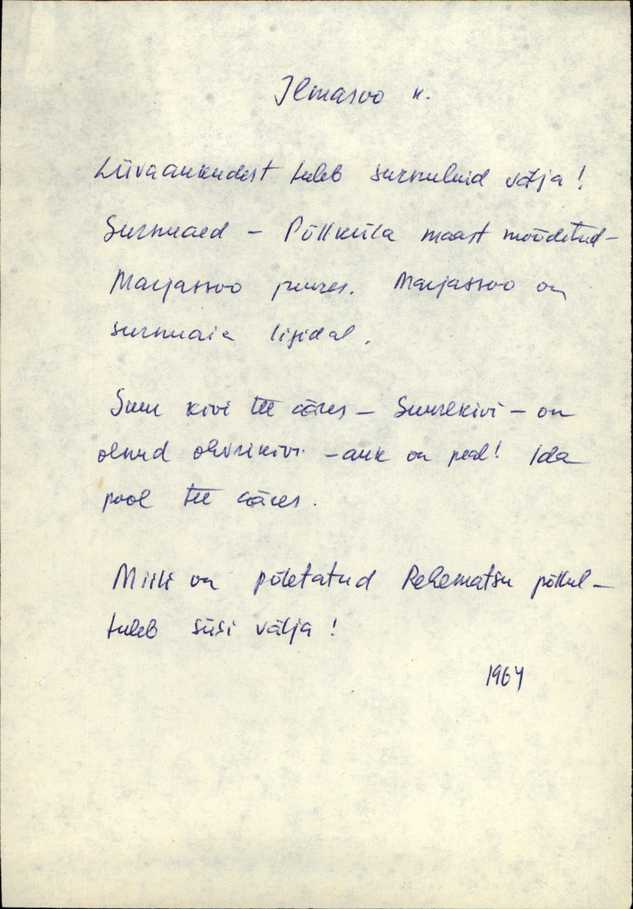 Ilmasoo k.
Liivaaukudest tuleb surnuluid välja!
Surnuaed – Põllküla maast mõõdetud –
Marjassoo juures. Marjassoo on
surnuaia ligidal.
Suur kivi tee ääres – Suurekivi – on
olnud ohvrikivi – auk on peal! Ida
pool tee ääres.
Miili on põletatud Rehematsu põllul –
tuleb süsi välja!
1964